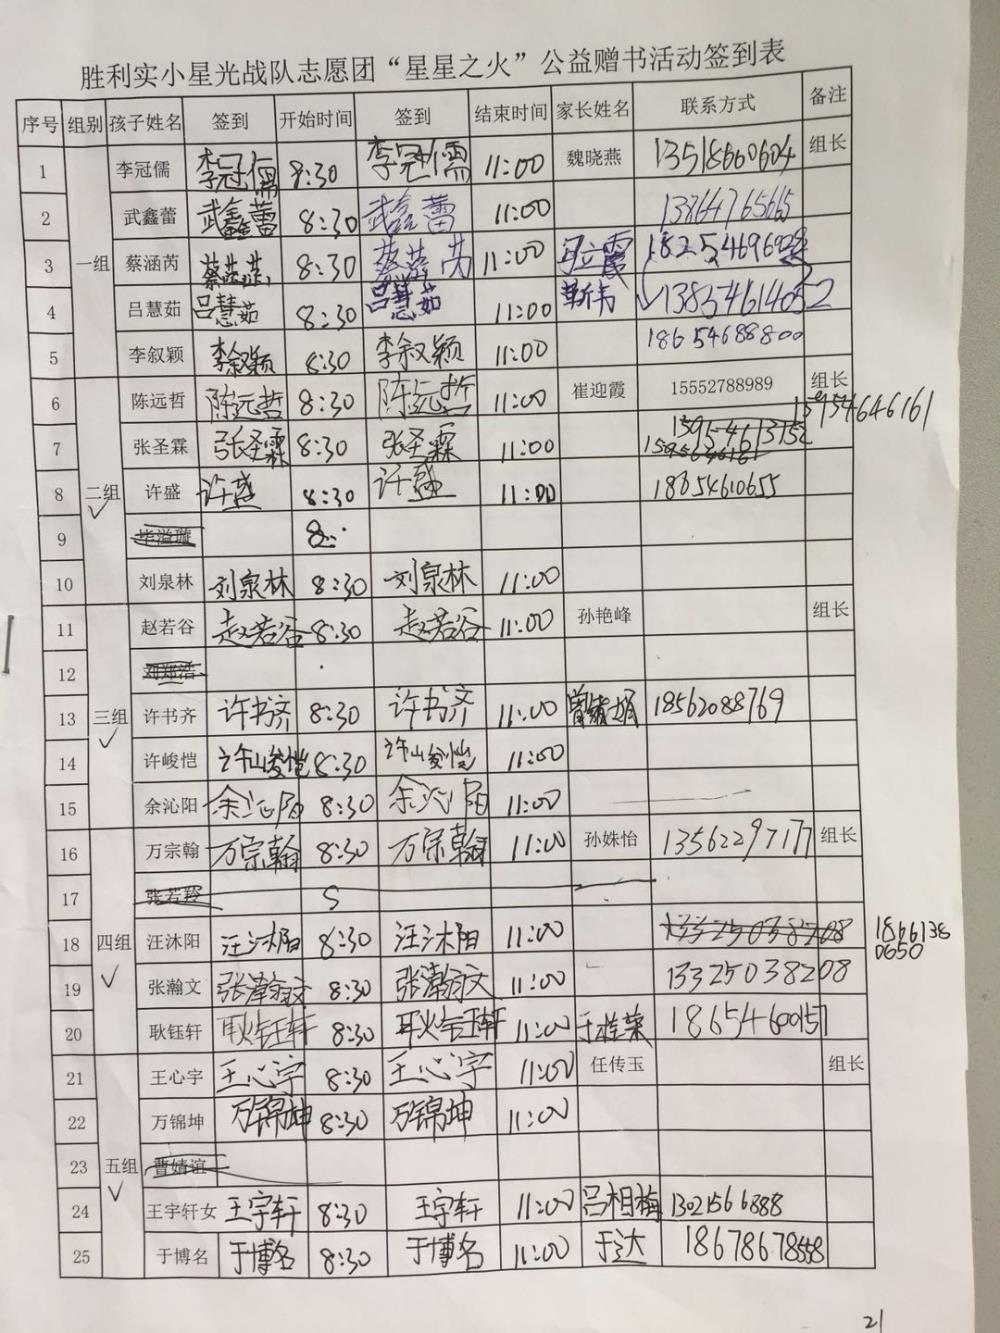 胜利实小星光战队志愿团“星星之火”公益赠书活动签到表
序号 组别 孩子姓名 签到 开始时间 签到 结束时间 家长姓名 联系方式 备注
1 李冠儒 李冠儒 8:30 李冠儒 11:00 魏晓燕 13518660604 组长
2 武鑫蕾 武鑫蕾 8:30 武鑫蕾 11:00 13864765665
3 一组 蔡涵芮 8:30 11:00
4 吕慧茹 吕慧茹 8:30 吕慧茹 11:00 靳伟 13854614052
5 李叙颖 李叙颖 8:30 李叙颖 11:00 18654688800
6 陈远哲 陈远哲 8:30 陈远哲 11:00 崔迎霞 15552788989 组长
15954646161
7 张圣霖 张圣霖 8:30 张圣霖 11:00
8 二组 许盛 许盛 8:30 许盛 11:00 18854610655
9 毕溢璇 8:
10 刘泉林 刘泉林 8:30 刘泉林 11:00
11 赵若谷 赵若谷 8:30 赵若谷 11:00 孙艳峰 组长
12
13 三组 许书齐 许书齐 8:30 许书齐 11:00 18562088769
14 许峻恺 许峻恺 8:30 许峻恺 11:00
15 余沁阳 余沁阳 8:30 余沁阳 11:00
16 万宗翰 万宗翰 8:30 万宗翰 11:00 孙姝怡 13562297177 组长
17 张若羚
18 四组 汪沐阳 汪沐阳 8:30 汪沐阳 11:00 13325038208 18661380650
19 张瀚文 张瀚文 8:30 张瀚文 11:00 13325038208
20 耿钰轩 耿钰轩 8:30 耿钰轩 11:00 于桂荣 18654600157
21 王心宇 王心宇 8:30 王心宇 11:00 任传玉 组长
22 万锦坤 万锦坤 8:30 万锦坤 11:00
23 五组 曹婧谊
24 王宇轩女 王宇轩 8:30 王宇轩 11:00 吕相梅 13021566888
25 于博名 于博名 8:30 于博名 11:00 于达 18678678558
21